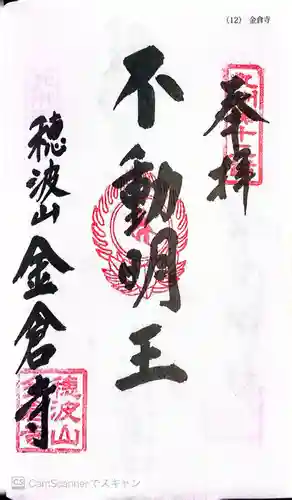 (12) 金倉寺
奉拝
不動明王
穂波山 金倉寺
穂波山
CS CamScannerでスキャン